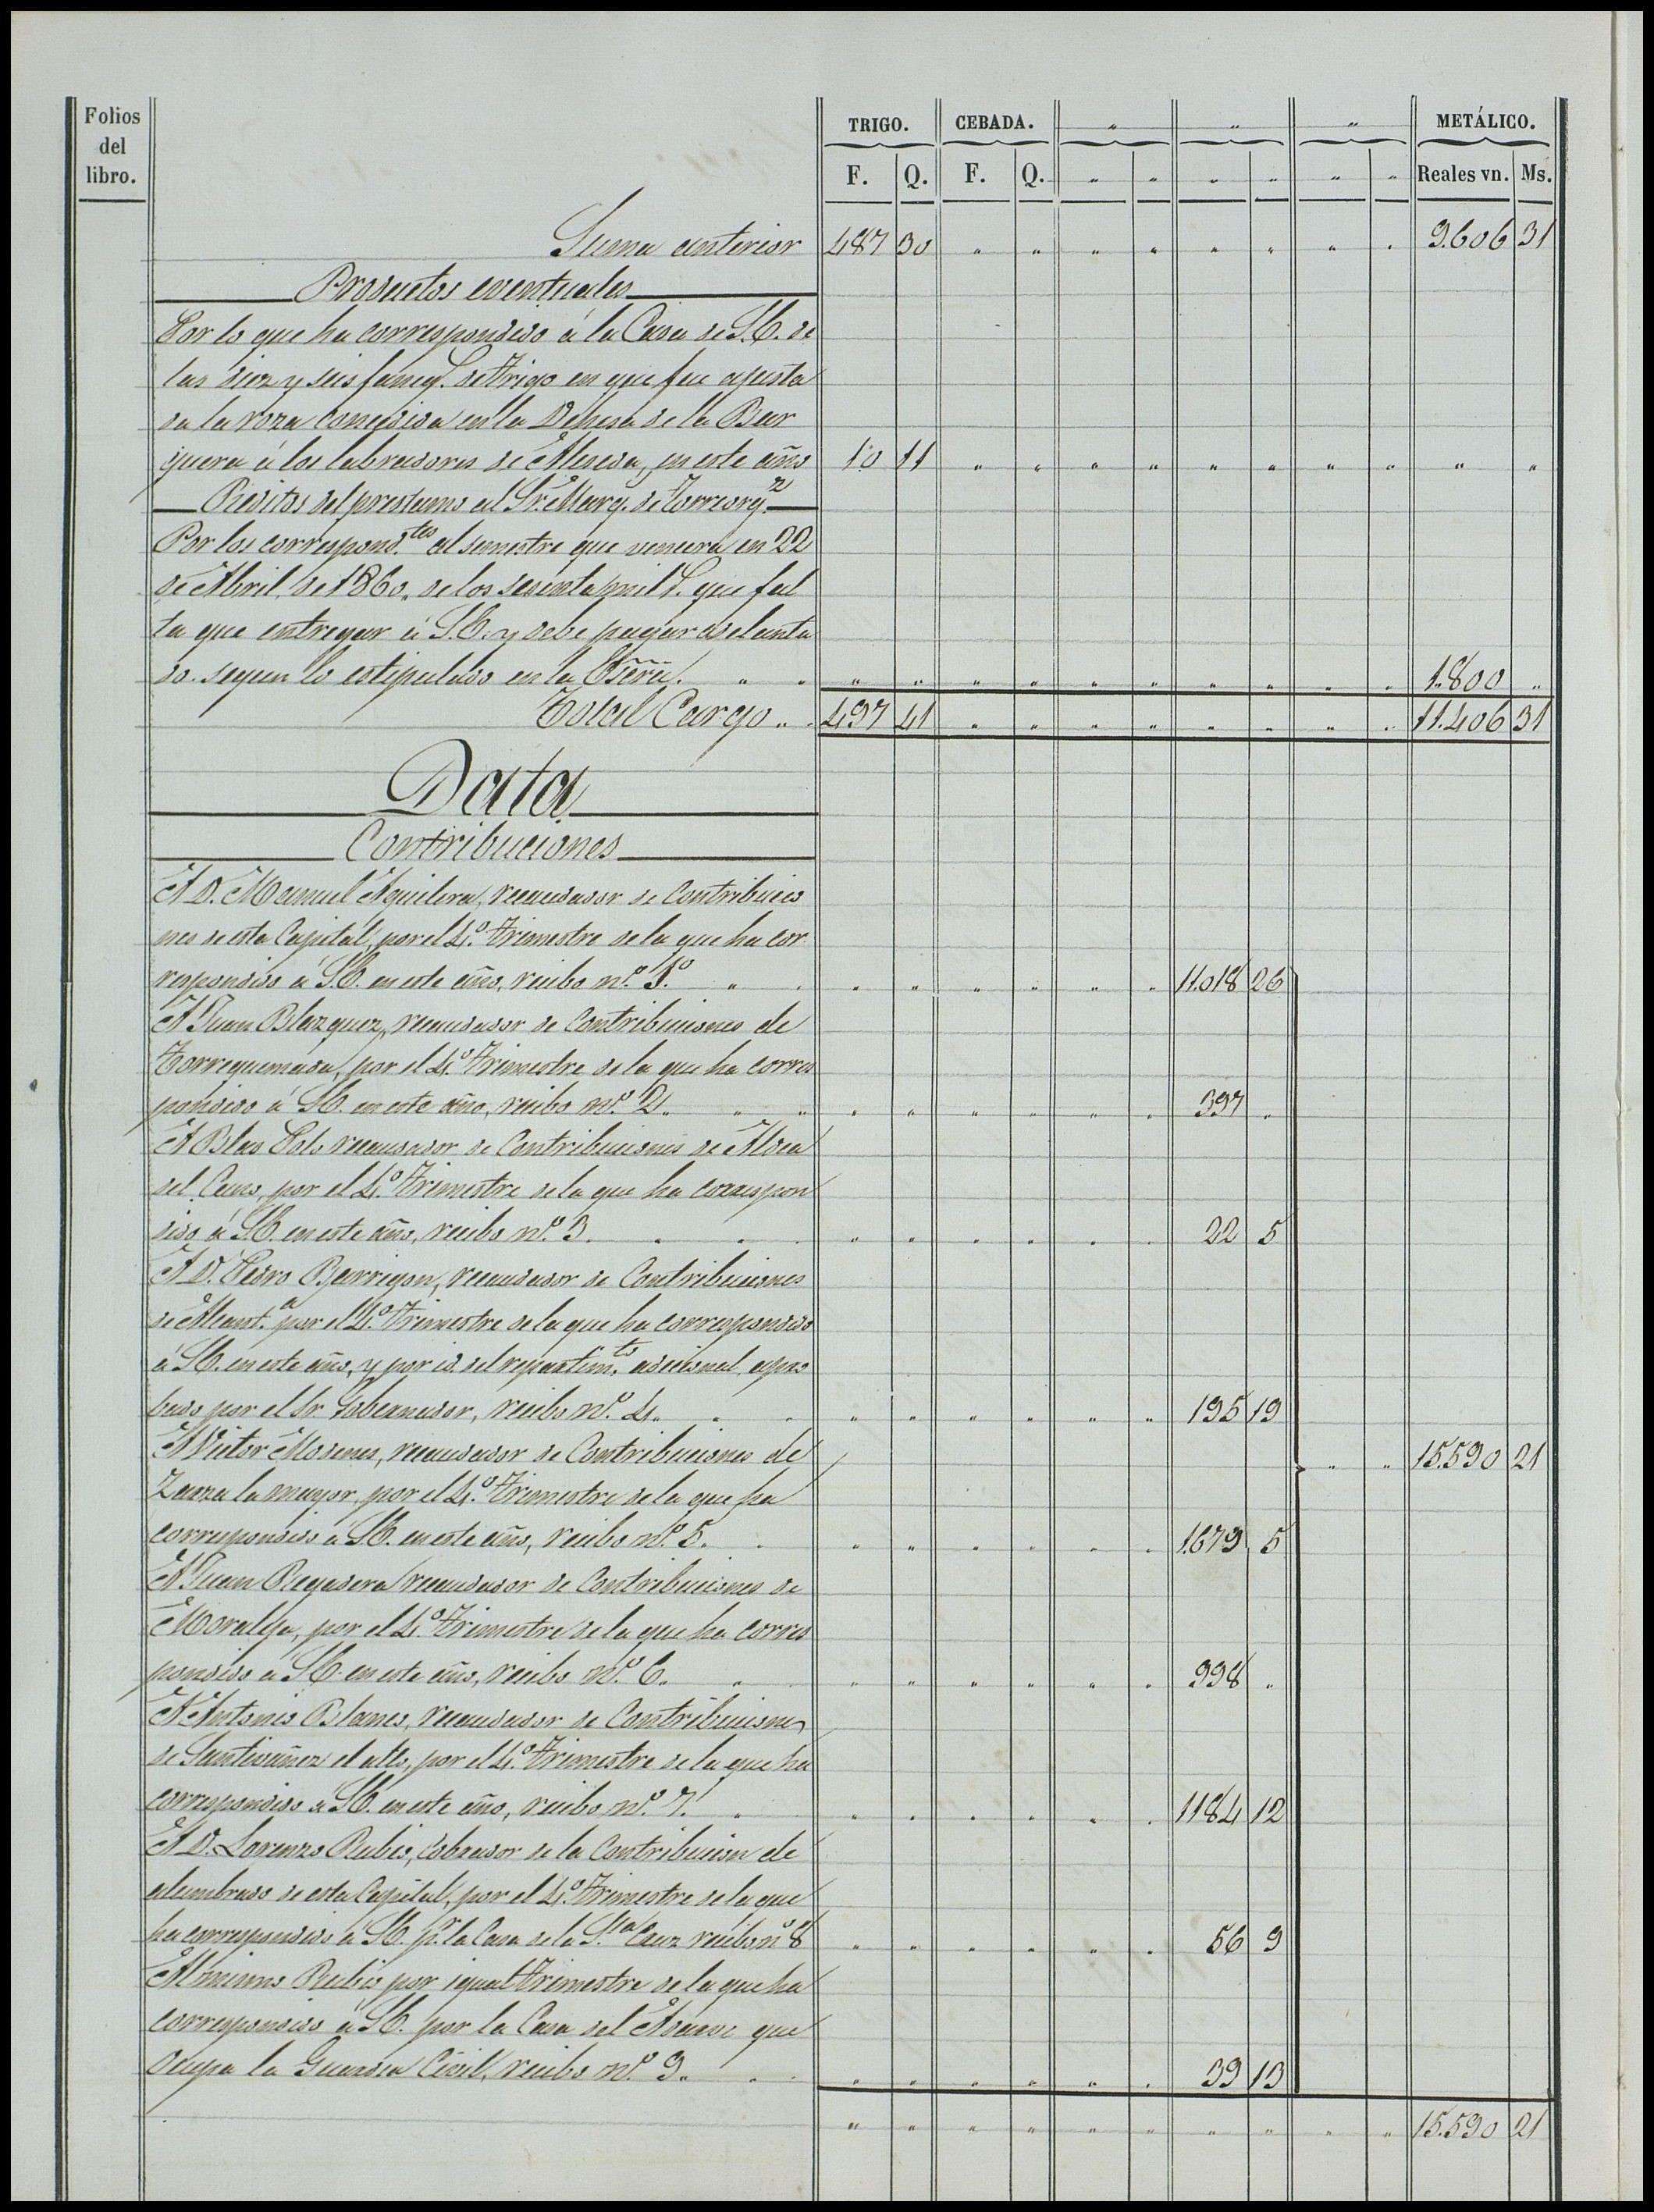 Folios del libro.
TRIGO. CEBADA. " " " METÁLICO.
F. Q. F. Q. " " " " " " Reales vn. Ms.
Suma anterior 487 30 " " " " " " " " 9.606 31
Productos eventuales
Por lo que ha correspondido á la Casa de S.E. de
las diez y seis faneg.s de Trigo en que fue ajusta
da la roza concedida en la Dehesa de la Bur
quera á los labradores de , en este año 10 11 " " " " " " " " " "
Réditos del prestamo al Sr. Marq. de Torreorg.z
Por los correspond.tes al semestre que vencera en 22
de Abril de 1860, de los sesenta mil r. que fal
ta que entregar á S.E. y debe pagar adelanta
do segun lo estipulado en la Escrã. " " " " " " " " " " " " 1.800 "
Total Cargo 497 41 " " " " " " " " 11.406 31
Data
Contribuciones
A D. Manuel Aguilera, recaudador de Contribucio
nes de esta Capital, por el 4.º Trimestre de la que ha cor
respondido á S.E. en este año, recibo n.º 1.º " " " " " " 11.018 26
A Juan Blazquez, recaudador de Contribuciones de
Torrequemada, por el 4.º Trimestre de la que ha corres
pondido á S.E. en este año, recibo n.º 2. " " " " " " 397 "
A Blas Polo recaudador de Contribuciones de Aldea
del Cano, por el 4.º Trimestre de la que ha correspon
dido á S.E. en este año, recibo n.º 3. " " " " " " 22 5
A D. Pedro Barrigon, recaudador de Contribuciones
de Alcant.a por el 4.º Trimestre de la que ha correspondido
á S.E. en este año, y por id. del repartim.to adicional apro
bado por el Sr. Gobernador, recibo n.º 4. " " " " " " 195 19
A Victor Modenes, recaudador de Contribuciones de " " 15.590 21
Zarza la mayor, por el 4.º Trimestre de la que ha
correspondido á S.E. en este año, recibo n.º 5. " " " " " " 1.679 5
A Juan Regadera recaudador de Contribuciones de
Moraleja, por el 4.º Trimestre de la que ha corres
pondido á S.E. en este año, recibo n.º 6. " " " " " " 998 "
A Antonio Blanes, recaudador de Contribuciones
de Santivañez el alto, por el 4.º Trimestre de la que ha
correspondido á S.E. en este año, recibo n.º 7. " " " " " " 1184 12
A D. Lorenzo Rubio, cobrador de la Contribucion de
alumbrado de esta Capital, por el 4.º Trimestre de la que
ha correspondido á S.E. p.r la Casa de la S.ta Cruz recibo n.º 8 " " " " " " 56 9
Al mismo Rubio por igual Trimestre de la que ha
correspondido á S.E. por la Casa del que
ocupa la Guardia Civil, recibo n.º 9. " " " " " " 39 13
" " " " " " " " " " 15.590 21